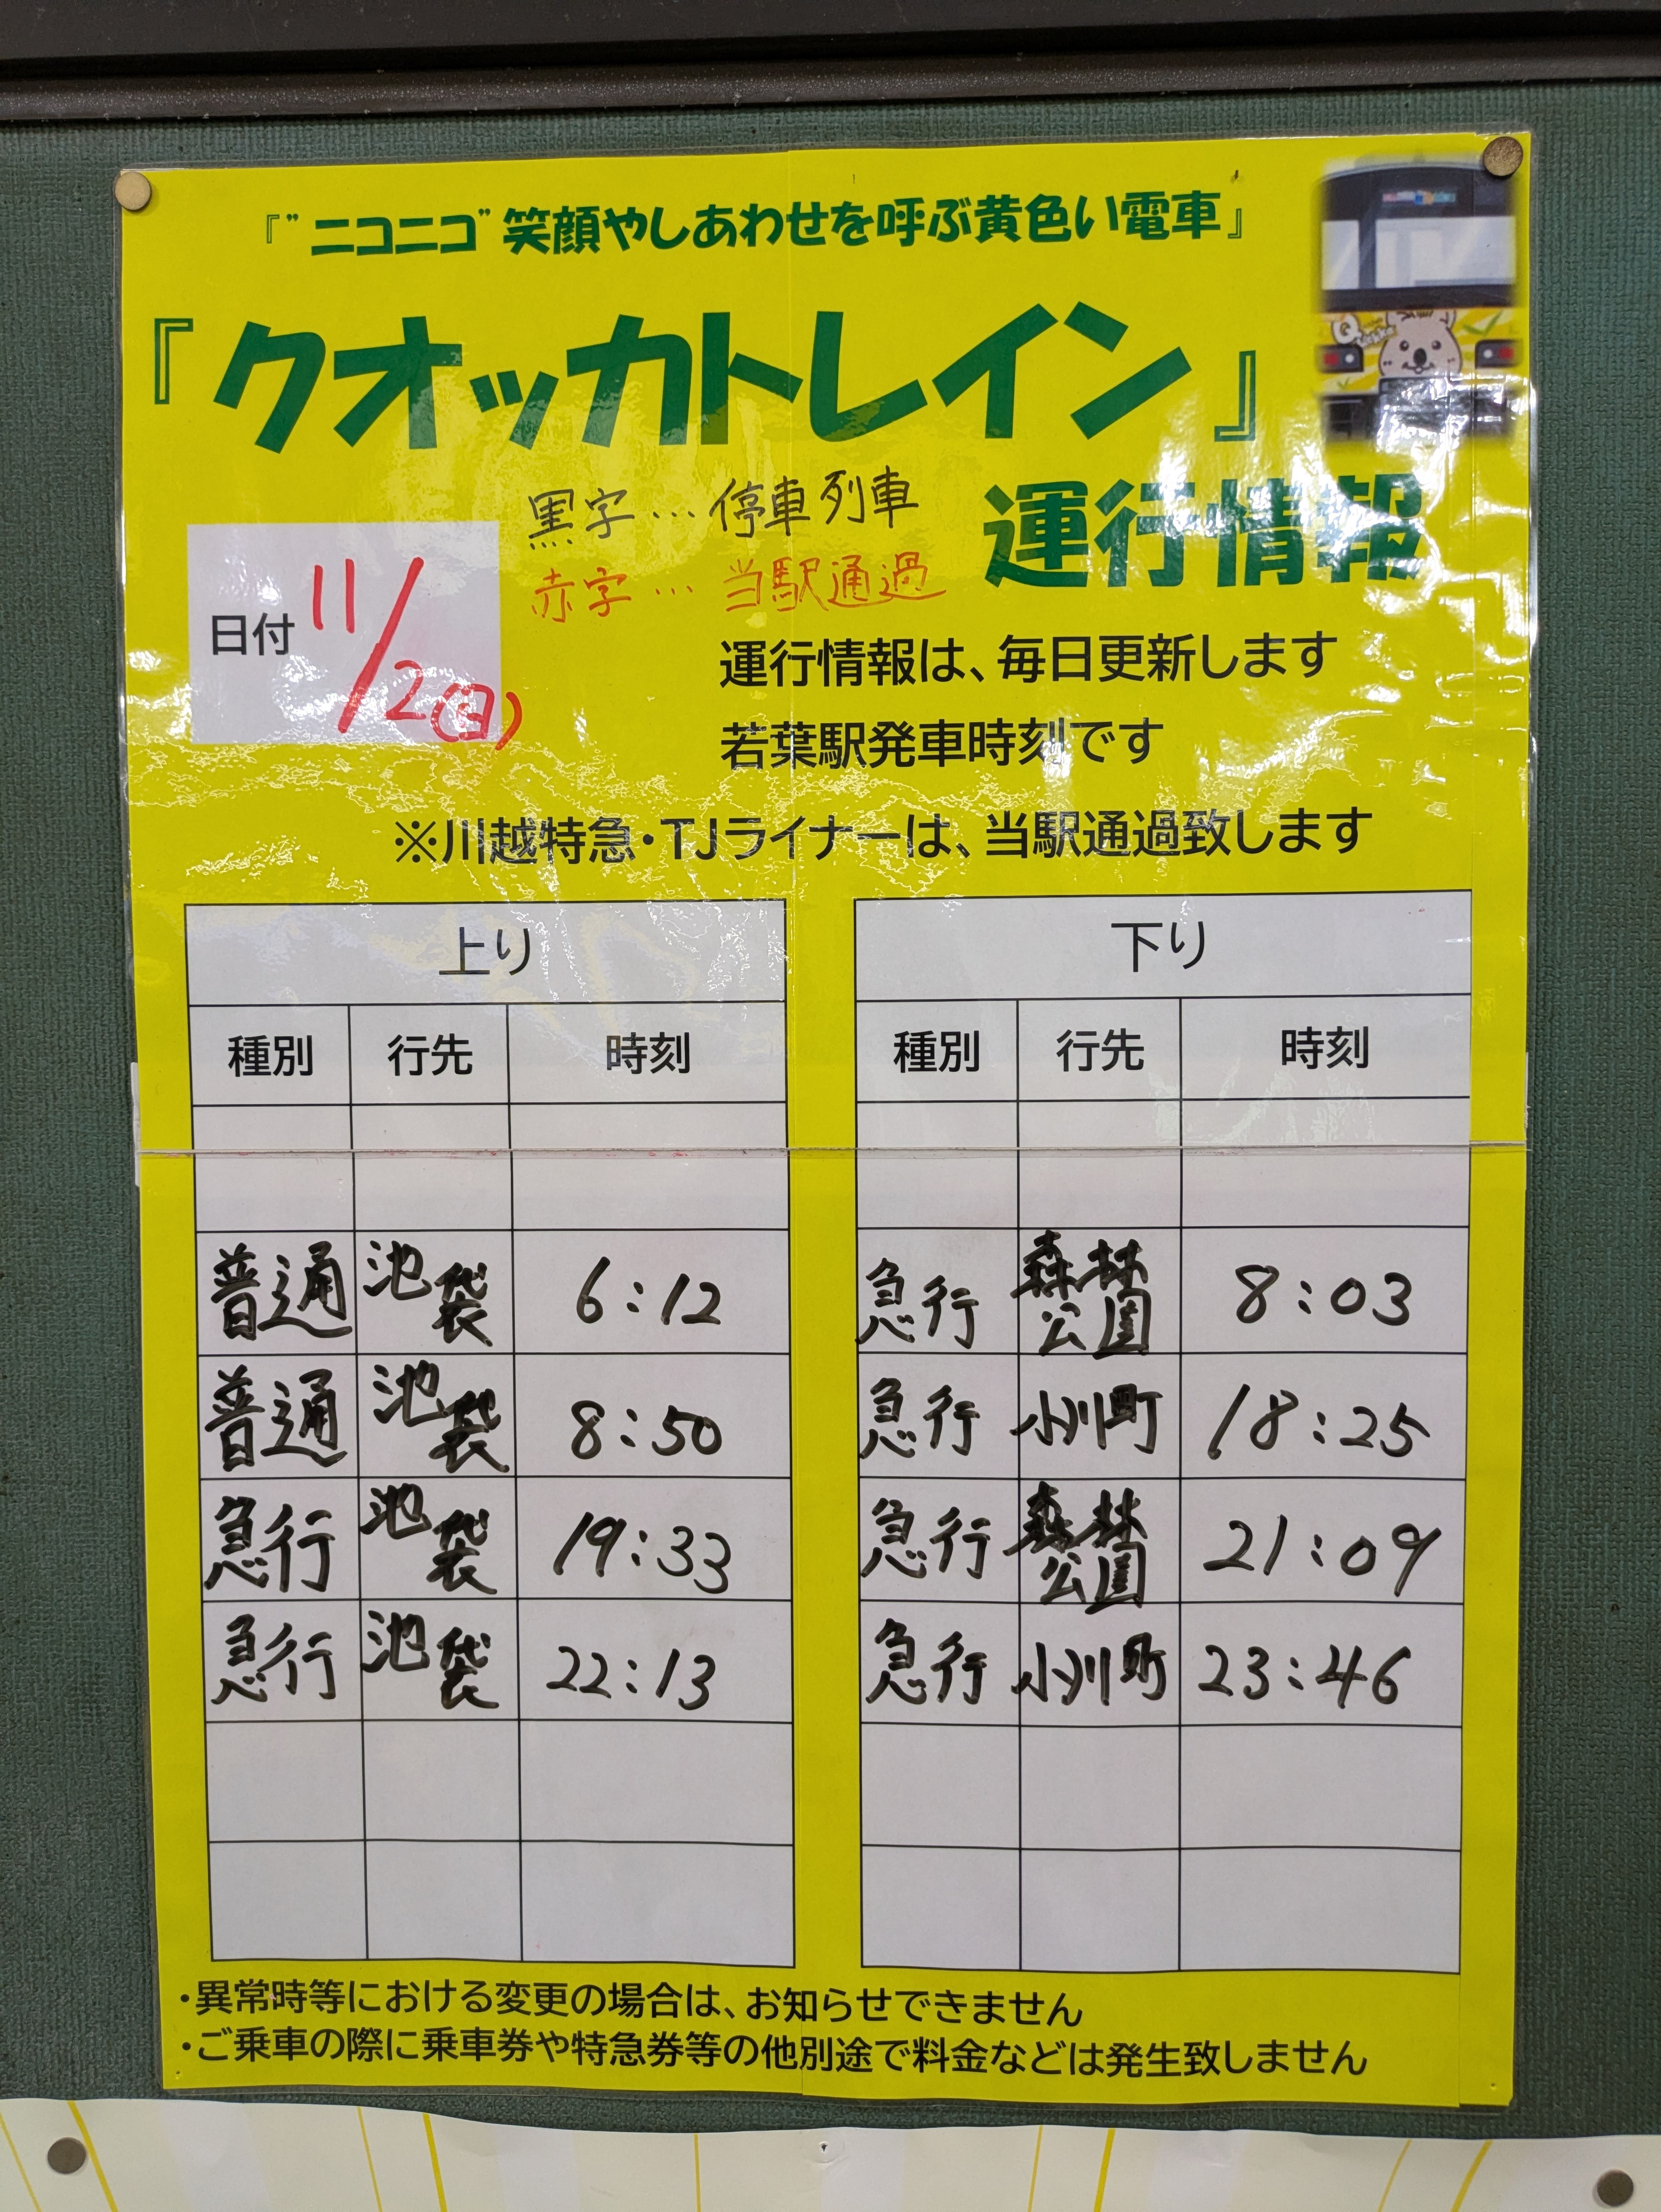 『"ニコニコ"笑顔やしあわせを呼ぶ黄色い電車』
『クオッカトレイン』
運行情報
黒字…停車列車
赤字…当駅通過
日付 11/2(日)
運行情報は、毎日更新します
若葉駅発車時刻です
※川越特急・TJライナーは、当駅通過致します
上り
種別 行先 時刻
普通 池袋 6:12
普通 池袋 8:50
急行 池袋 19:33
急行 池袋 22:13
下り
種別 行先 時刻
急行 森林公園 8:03
急行 小川町 18:25
急行 森林公園 21:09
急行 小川町 23:46
・異常時等における変更の場合は、お知らせできません
・ご乗車の際に乗車券や特急券等の他別途で料金などは発生致しません